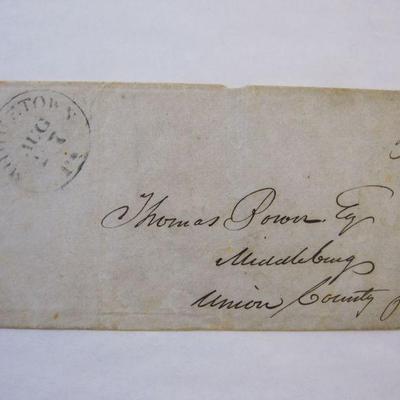 MIDDLETOWN Pa.
AUG
7
Thomas Bower Esq
Middleburg
Union County